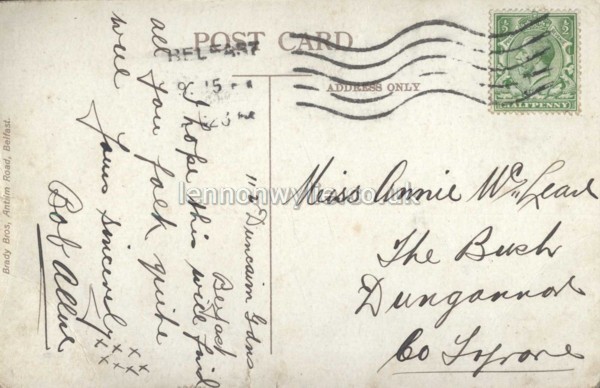 POST CARD
ADDRESS ONLY
BELFAST
HALFPENNY
lennonwylie.co.uk
Brady Bros, Antrim Road, Belfast.
115 Duncairn Gdns
Belfast
I hope this will find
all you folk quite
well
Yours Sincerely
Bob Allen
x x x x x x
Miss Annie McLean
The Bush
Dungannon
Co Tyrone